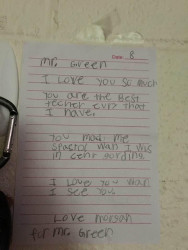 Date 8
Mr. Green
I Love you so much
You are the Best
techer ever that
I have.
You mad me
wan I was
in
I Love you wan
I see you.
Love
for Mr. Green